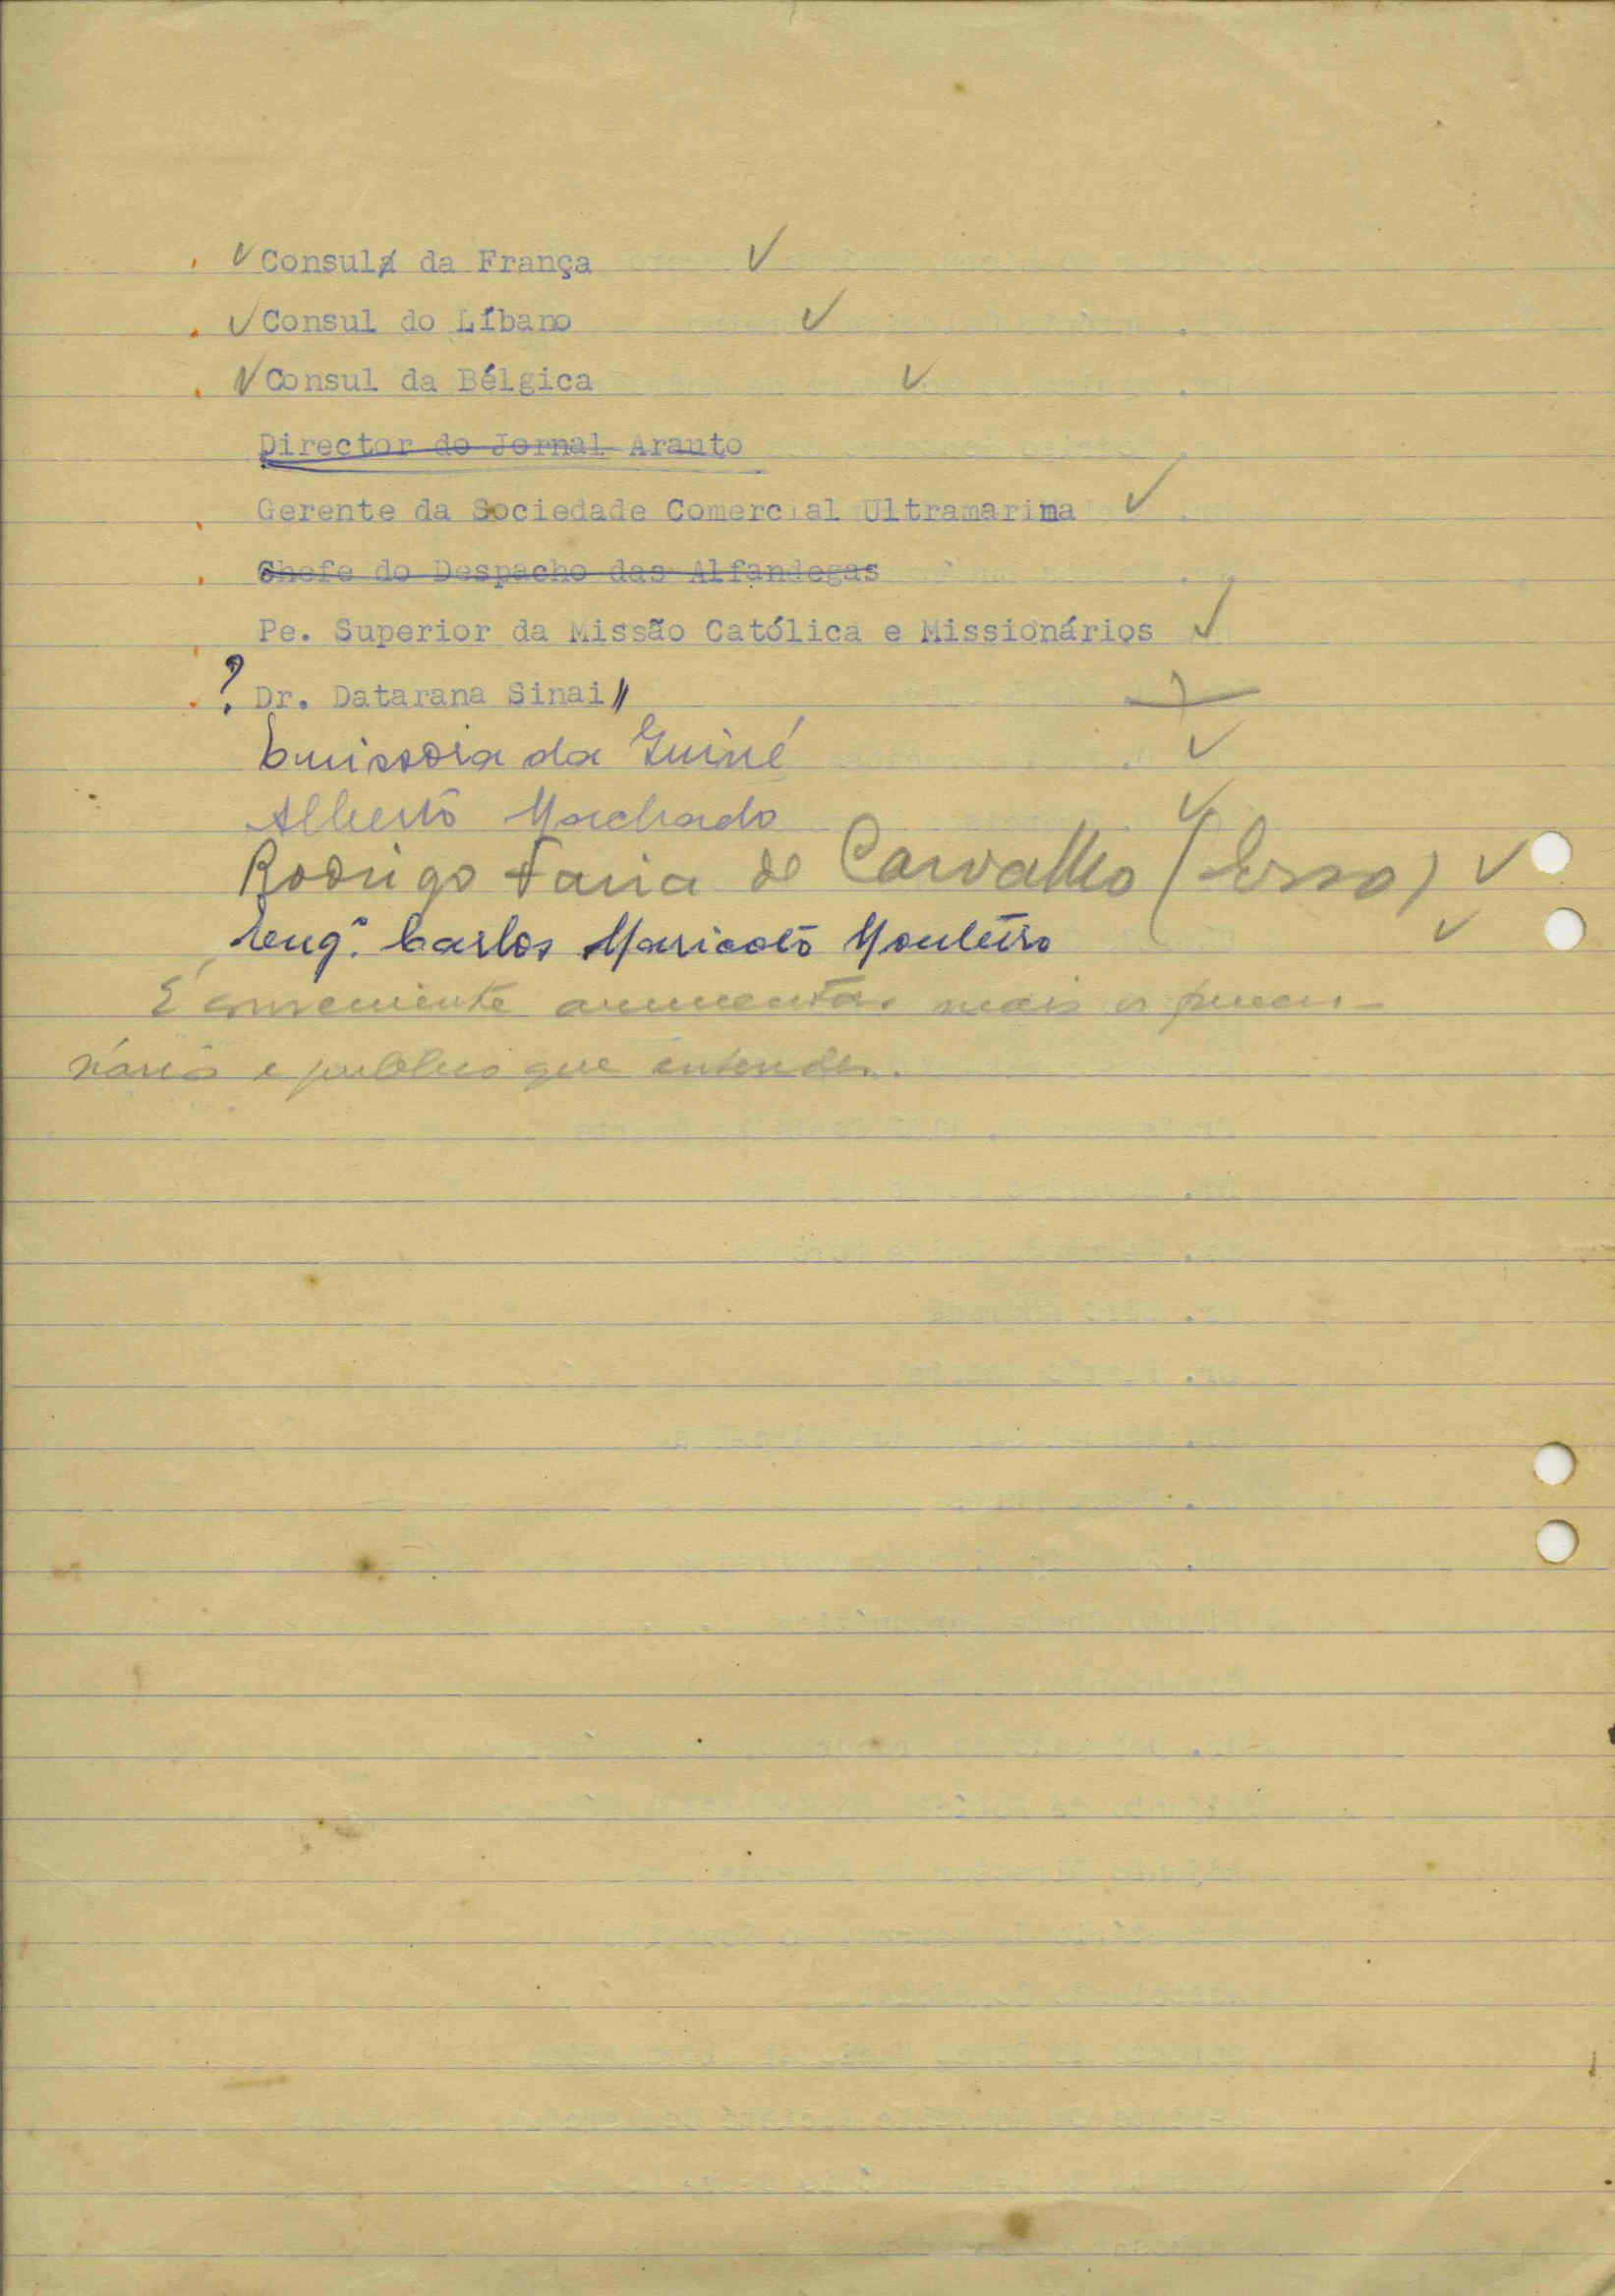 ✓ Consul da França ✓
✓ Consul do Líbano ✓
✓ Consul da Bélgica ✓
Director do Jornal Arauto
Gerente da Sociedade Comercial Ultramarina ✓
Chefe do Despacho das Alfandegas
Pe. Superior da Missão Católica e Missionários ✓
? Dr. Datarana Sinai
Emissora da Guiné ✓
Alberto Machado ✓
Rodrigo Faria de Carvalho (Esso) ✓
Engº. Carlos Monteiro ✓
É conveniente mais os
e que entender.